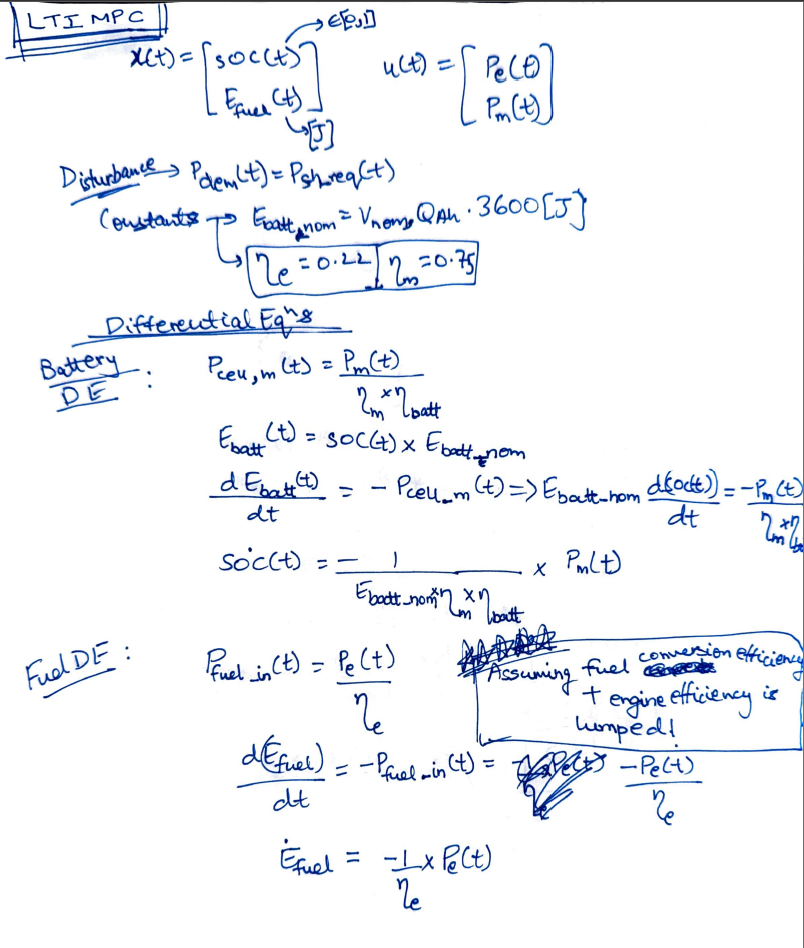 LTI MPC
x(t) = [SOC(t) → ∈[0,1]
E_fuel(t)] → [J]
u(t) = [P_e(t)
P_m(t)]
Disturbance → P_dem(t) = P_sh_req(t)
Constants → E_batt_nom = V_nom, Q_Ah · 3600 [J]
η_e = 0.22 | η_m = 0.75
Differential Eqⁿs
Battery DE :
P_cell,m(t) = P_m(t) / (η_m × η_batt)
E_batt(t) = SOC(t) × E_batt_nom
dE_batt(t)/dt = - P_cell_m(t) => E_batt-nom d(SOC(t))/dt = -P_m(t) / (η_m × η_b
SȮC(t) = - 1 / (E_batt_nom × η_m × η_batt) × P_m(t)
Fuel DE :
P_fuel_in(t) = P_e(t) / η_e
Assuming fuel conversion efficiency
+ engine efficiency is
lumped!
d(E_fuel)/dt = -P_fuel_in(t) = -P_e(t) / η_e
Ė_fuel = -1/η_e × P_e(t)